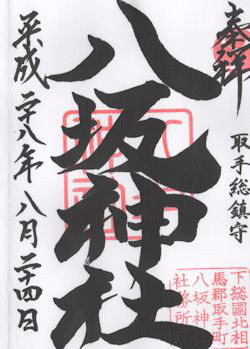 奉拝
取手総鎮守
八坂神社
平成二十八年八月二十四日
下総國北相
馬郡取手町
八坂神
社務所